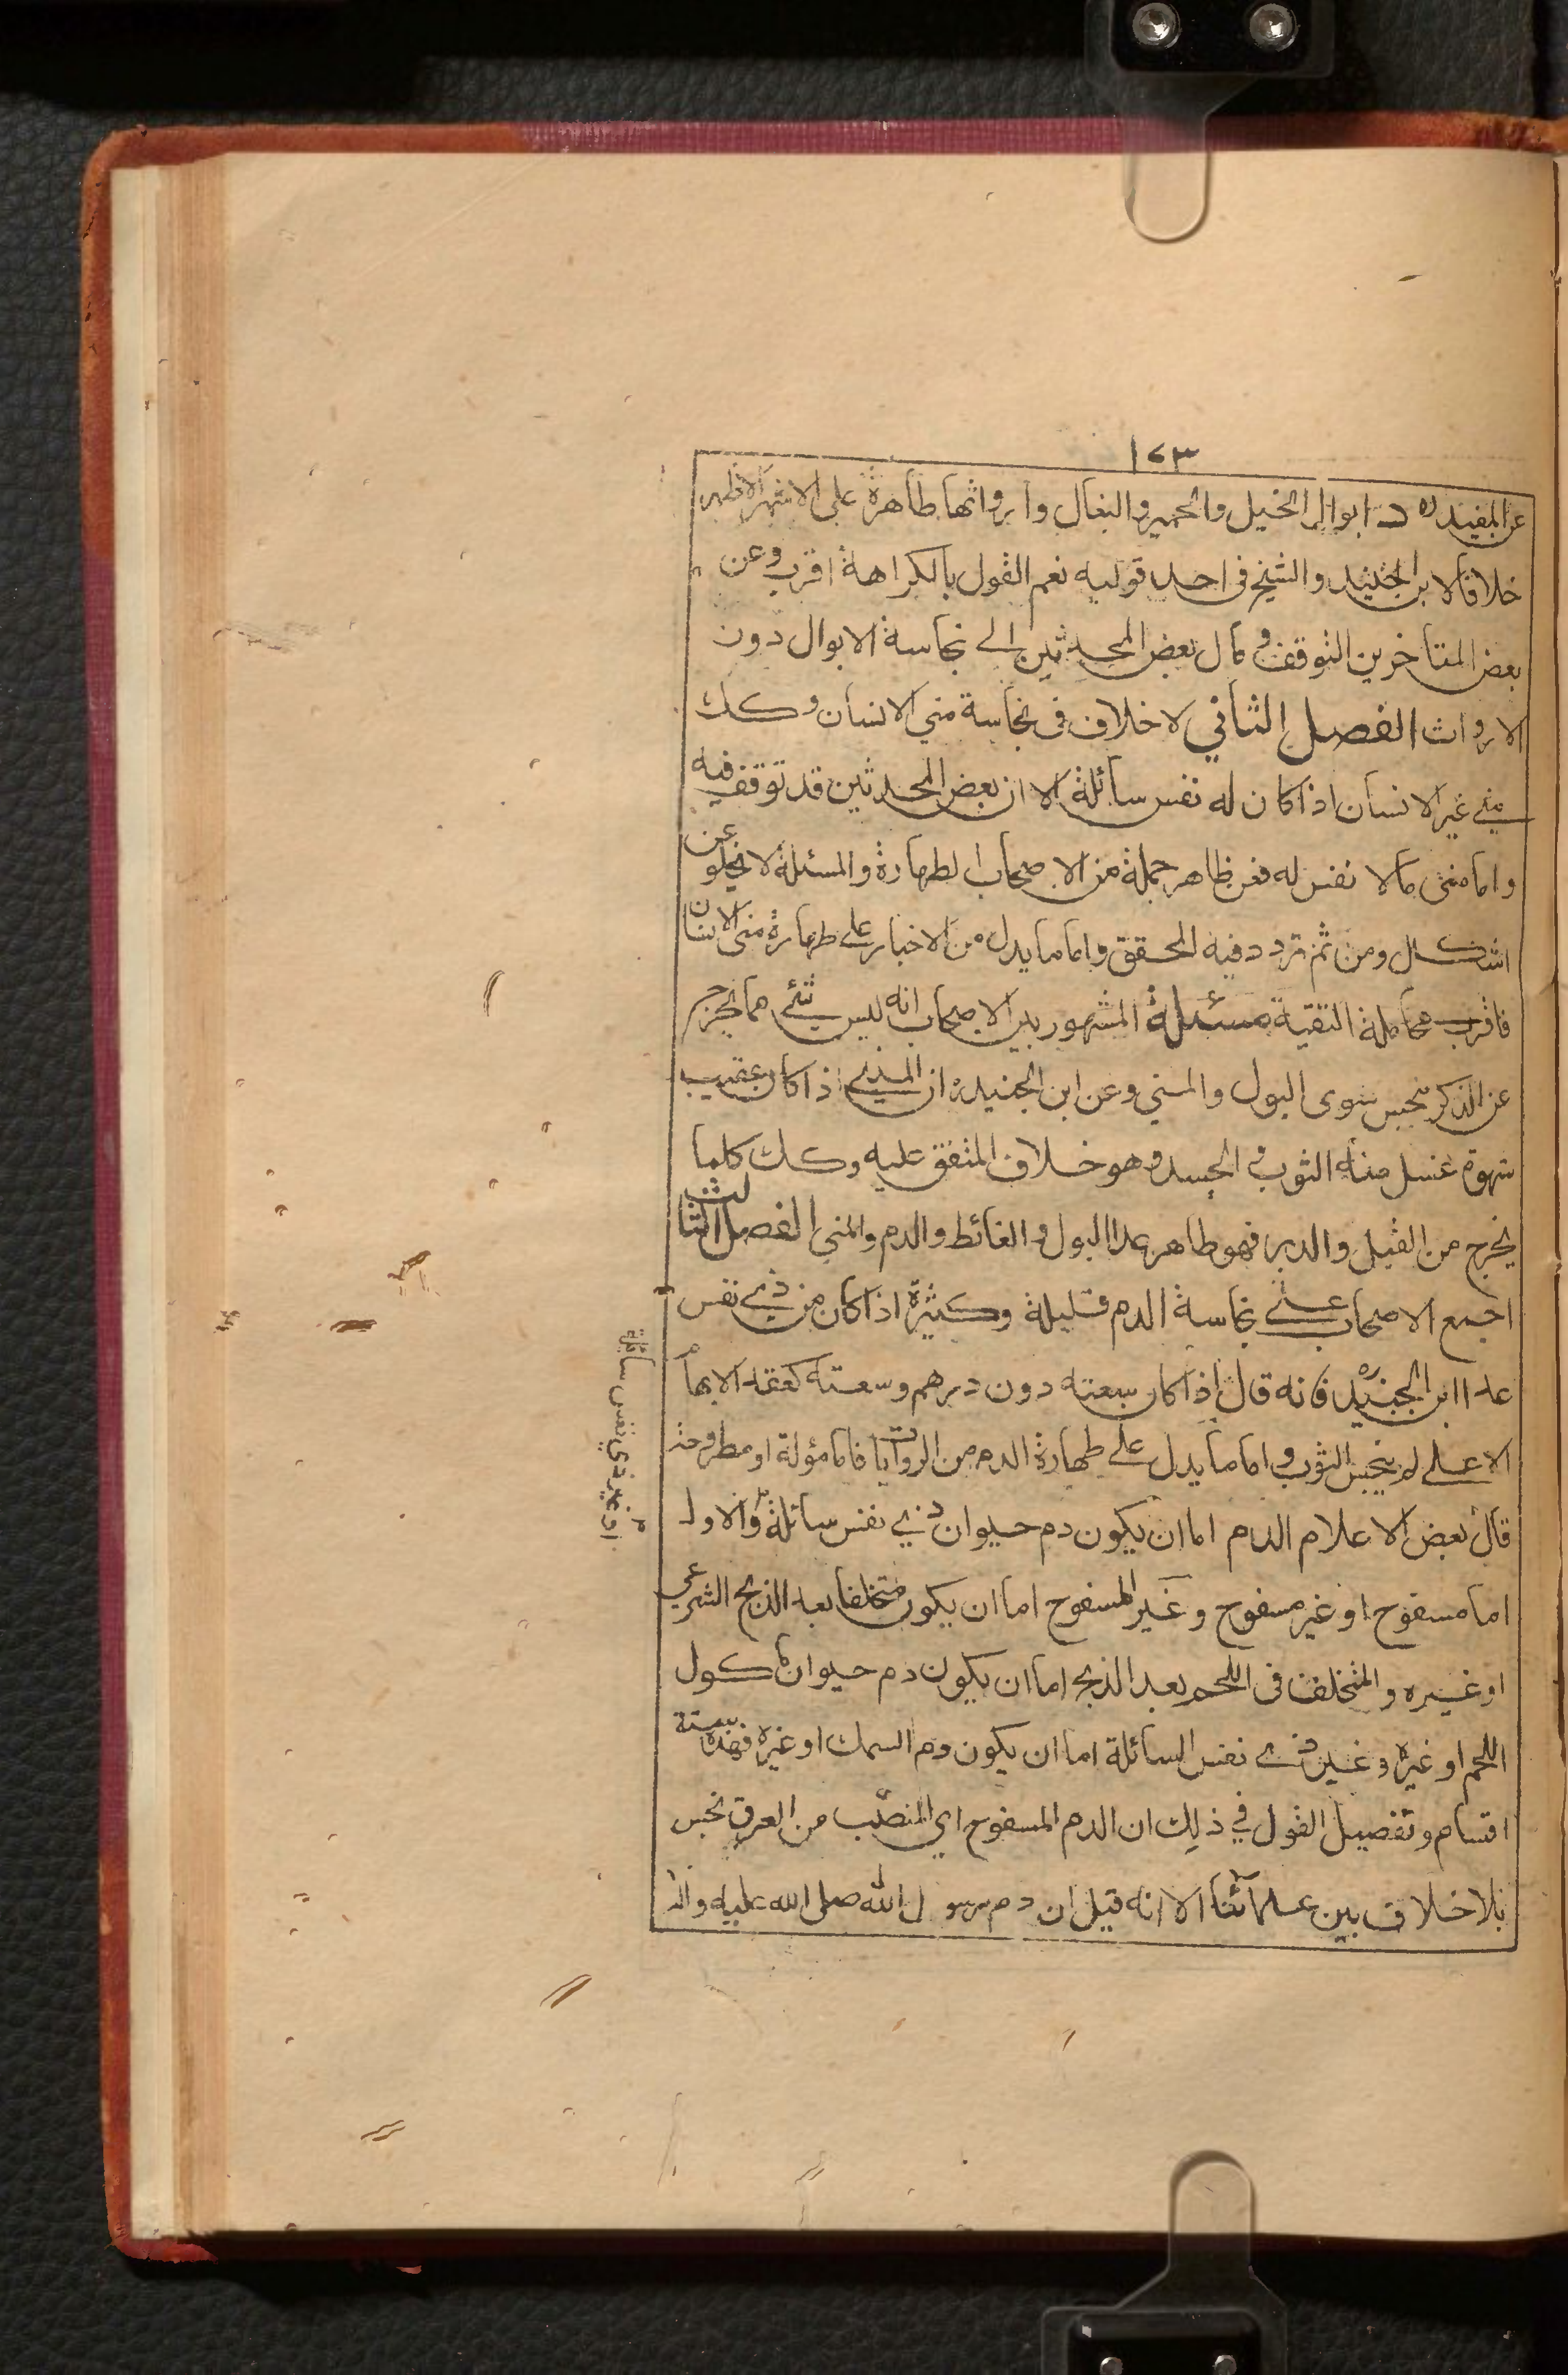 ١٤٣
عن المفيد ره د ابوال الخيل والحمير والبغال وارواثها طاهرة على الاشهر الاظهر
خلافا لابن الجنيد والشيخ في احد قوليه نعم القول بالكراهة اقرب وعن
بعض المتاخرين التوقف و مال بعض المحدثين الى نجاسة الابوال دون
الارواث الفصل الثاني لا خلاف في نجاسة مني الانسان وكك
مني غير الانسان اذا كان له نفس سائلة الا ان بعض المحدثين قد توقف فيه
واما مني مالا نفس له فعن ظاهر جملة من الاصحاب الطهارة والمسئلة لا يخلو عن
اشكال ومن ثم تردد فيه المحقق واما ما يدل من الاخبار على طهارة مني الانسان
فاقرب محامله التقية مسئلة المشهور بين الاصحاب انه ليس شئ مما يخرج
عن الذكر نجس سوى البول والمني وعن ابن الجنيد ره ان المذي اذا كان عقيب
شهوة غسل منه الثوب و الجسد وهو خلاف المتفق عليه وكك كلما
يخرج من القبل والدبر فهو طاهر عدا البول و الغائط والدم والمني الفصل الثالث
اجمع الاصحاب على نجاسة الدم قليلة وكثيرة اذا كان من ذي نفس
عدا ابن الجنيد ره فانه قال اذا كان سعته دون درهم وسعته كعقد الابهام
الاعلى لم ينجس الثوب و اما ما يدل على طهارة الدم من الروايات فاما مؤلة او مطروحة
قال بعض الاعلام الدم اما ان يكون دم حيوان ذي نفس سائلة والاول
اما مسفوح او غير مسفوح و غير المسفوح اما ان يكون متخلفا بعد الذبح الشرعي
او غيره و المتخلف في اللحم بعد الذبح اما ان يكون دم حيوان ماكول
اللحم او غيره و غير ذي نفس السائلة اما ان يكون دم السمك او غيره فهذه ستة
اقسام وتفصيل القول في ذلك ان الدم المسفوح اي المنصّب من العرق نجس
بلا خلاف بين علمائنا الا انه قيل ان دم رسول الله صلى الله عليه واله
او غير ذي نفس سائلة